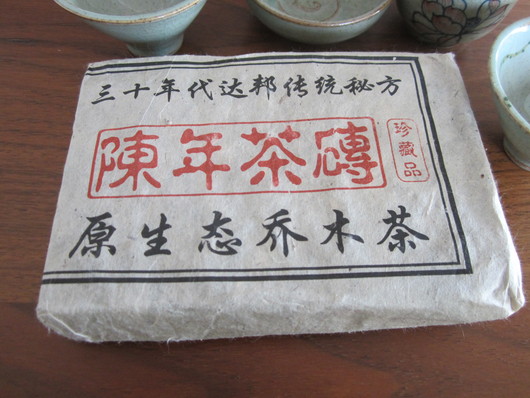 三十年代达邦传统秘方
陳年茶磚
珍藏品
原生态乔木茶